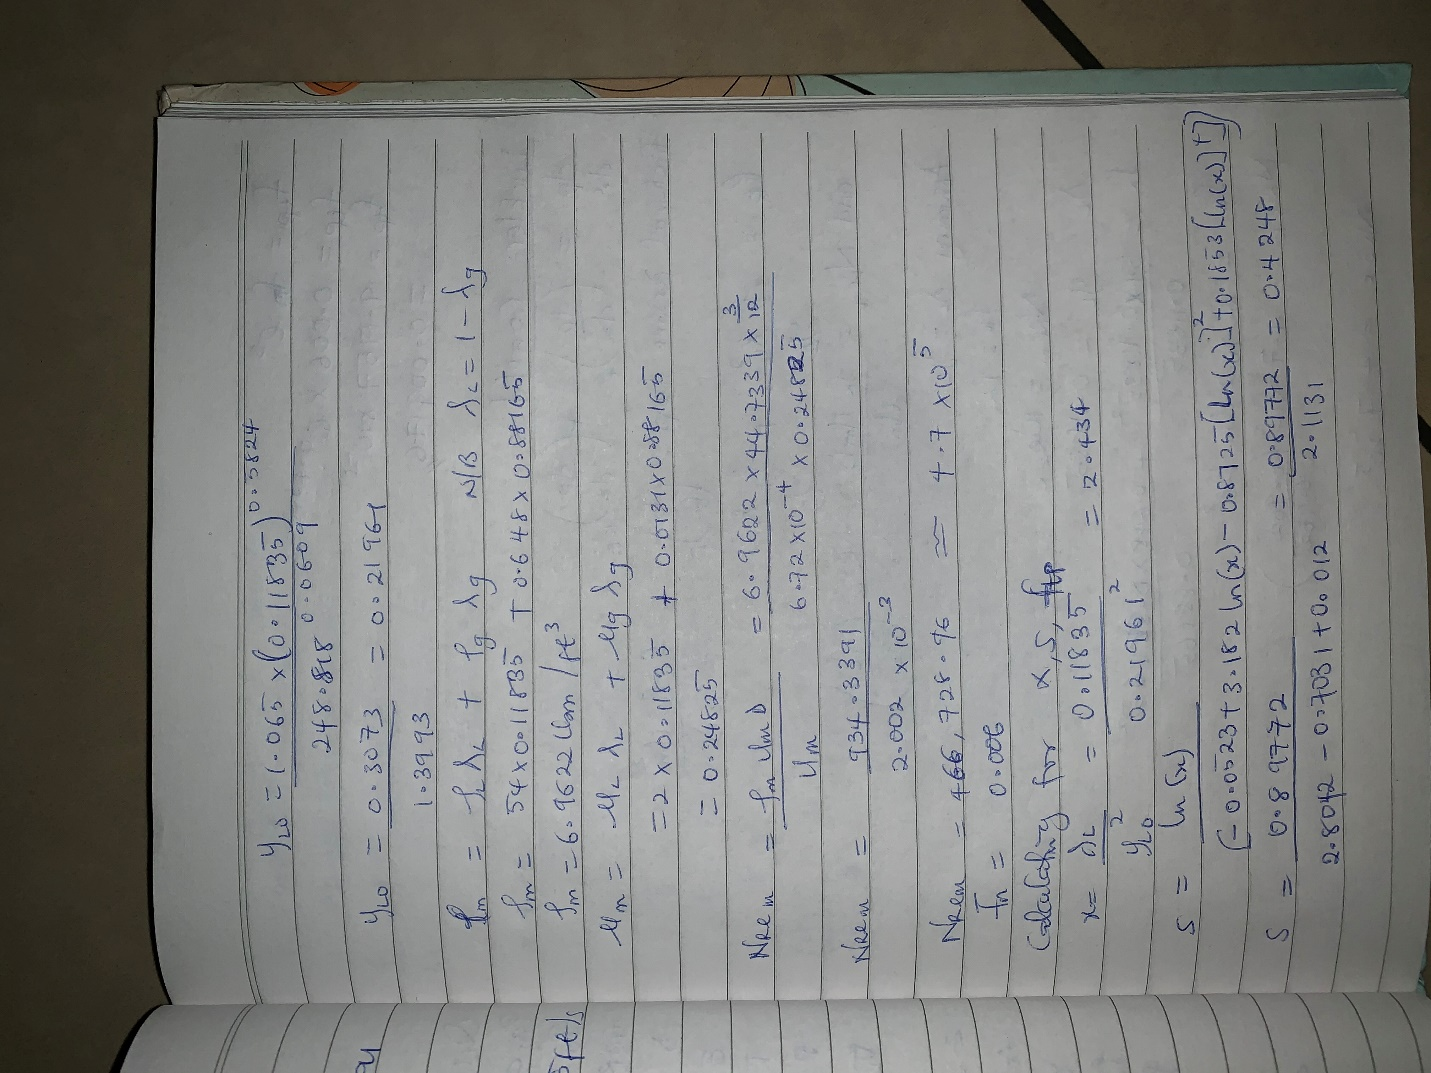 y_Lo = 1.065 × (0.11835)^0.5824
248.818^0.0609
y_Lo = 0.3073 = 0.21961
1.3993
ρm = ρL λL + ρg λg N/B λL = 1 − λg
ρm = 54 × 0.11835 + 0.648 × 0.88165
ρm = 6.9622 lbm/ft³
μm = μL λL + μg λg
= 2 × 0.11835 + 0.0131 × 0.88165
= 0.24825
NRem = ρm μm D = 6.9622 × 44.7339 × 3/12
μm 6.72 × 10⁻⁴ × 0.24825
NRem = 934.3391
2.002 × 10⁻³
NRem = 466,728.96 ≃ 4.7 × 10⁵
fn = 0.006
Calculating for x, S,
x = λL = 0.11835 = 2.434
y_Lo² 0.21961²
S = ln(x)
[−0.0523 + 3.182 ln(x) − 0.8725[ln(x)]² + 0.1853[ln(x)]⁴]
S = 0.89772 = 0.89772 = 0.4248
2.8042 − 0.7031 + 0.012 2.1131
5ft/s